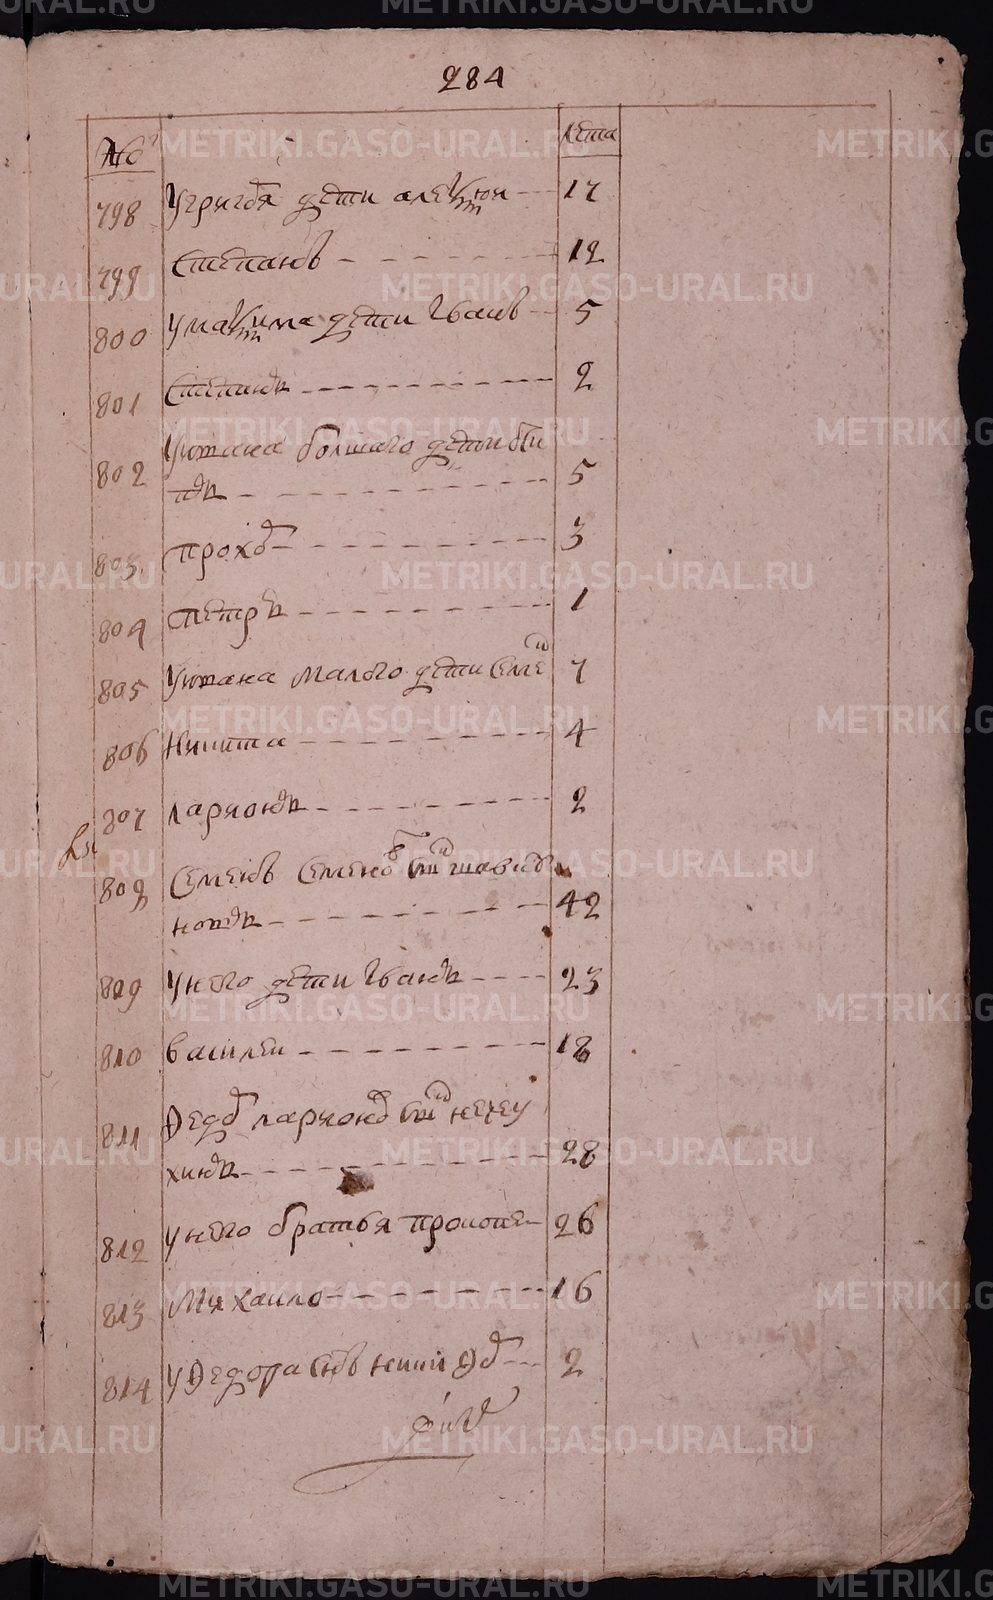 284
№ лета
798 У григоря дети алексеи 17
799 Степанъ 12
800 У максима дети Иванъ 5
801 Степанъ 2
802 У ивана болшаго дети
5
803 прохоръ 3
804 петръ 1
805 У ивана малого дети семенъ 7
806 Никита 4
807 ларионъ 2
808 Семенъ Семеновъ снъ
42
809 У него дети Иванъ 23
810 Василеи 18
811 Федоръ ларионовъ снъ нечеу
хинъ 28
812 У него братья прокопеи 26
813 Михаило 16
814 У Федора снъ 2
METRIKI.GASO-URAL.RU